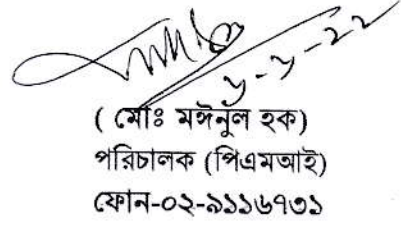 ( মোঃ মঈনুল হক)
পরিচালক (পিএমআই)
ফোন-০২-৯১১৬৭৩১